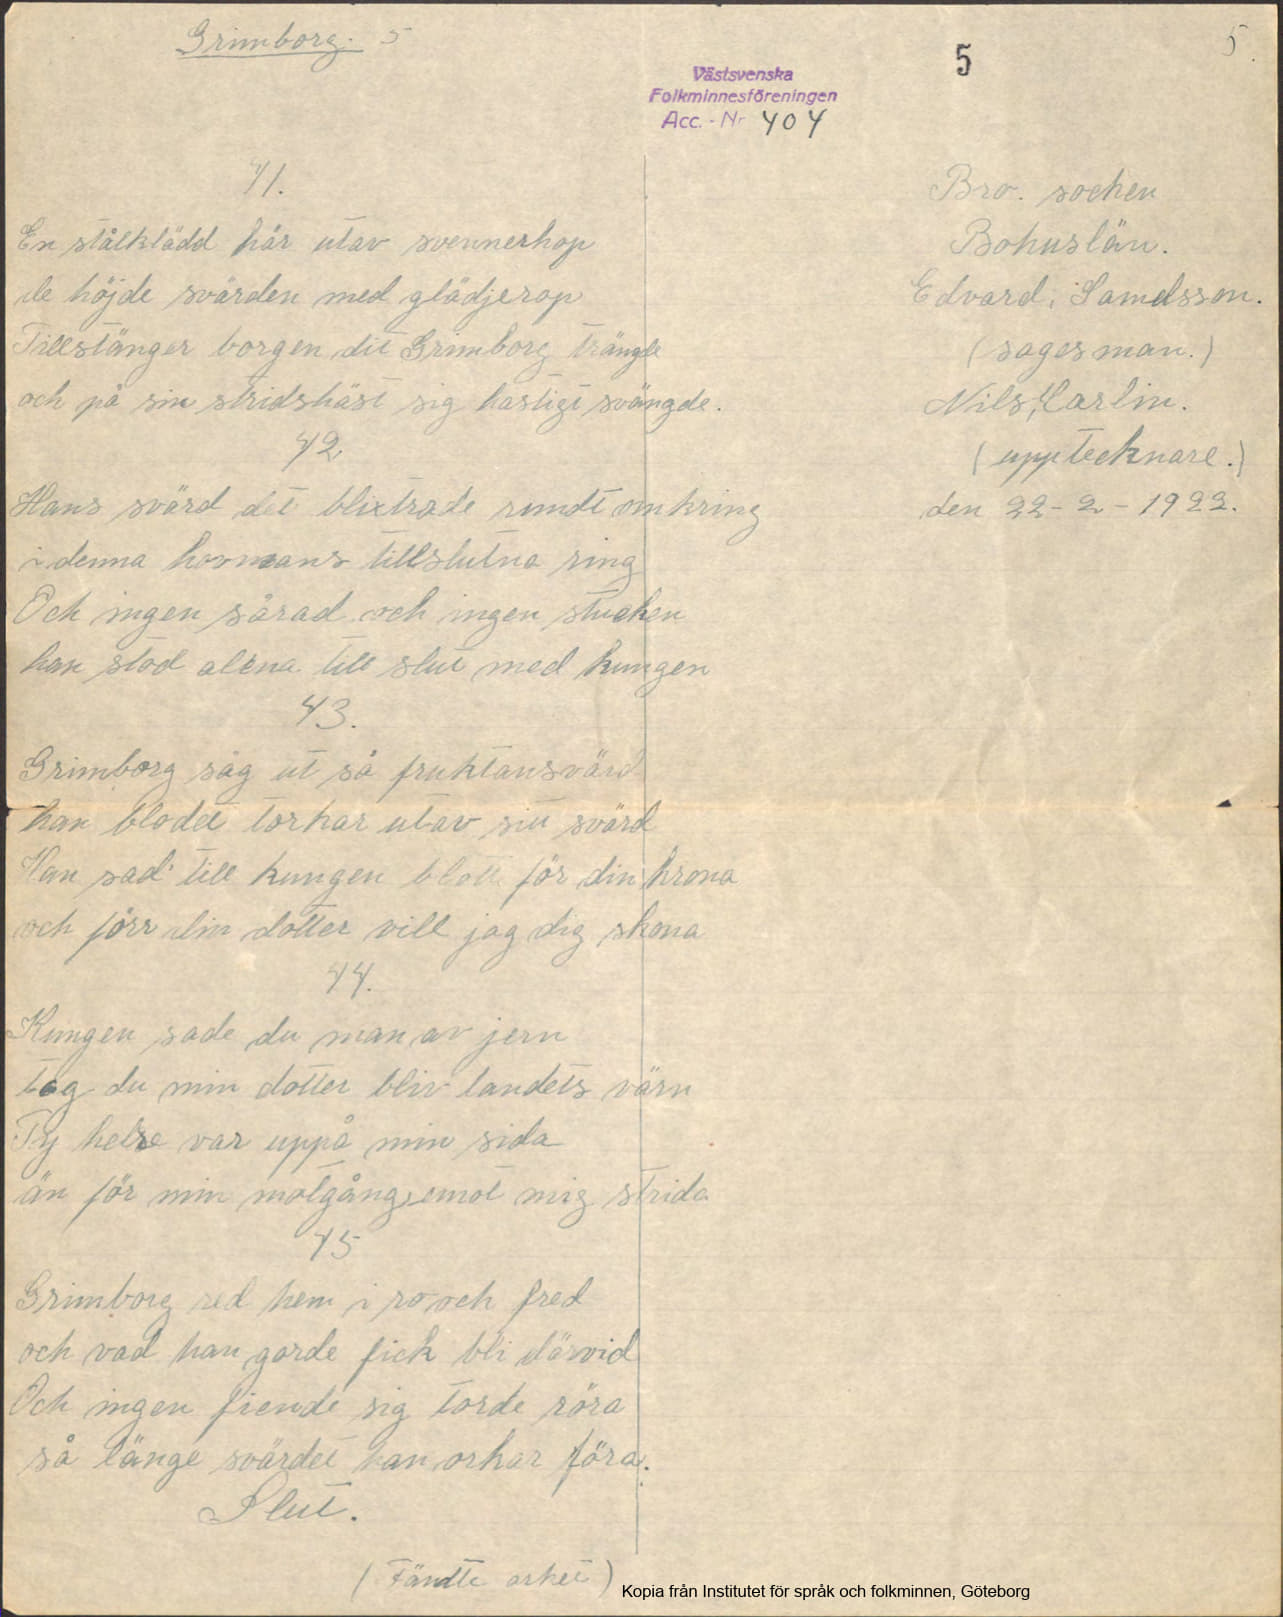 Grimborg. 5
5
5.
Västsvenska
Folkminnesföreningen
Acc. - Nr 404
41.
En stålklädd här utav svennerhop
de höjde svärden med glädjerop
Tillstänger borgen dit Grimborg trängde
och på sin stridshäst sig hastigt svängde.
42
Hans svärd det blixtrade rundt omkring
i denna hovmans tillslutna ring
Och ingen sårad och ingen stucken
han stod alena till slut med kungen
43.
Grimborg såg ut så fruktansvärd
han blodet torkar utav sitt svärd
Han sad' till kungen blott för din krona
och förr din dotter vill jag dig skona
44.
Kungen sade du man av jern
tag du min dotter bliv landets värn
Ty helre var uppå min sida
än för min motgång emot mig strida
45
Grimborg red hem i ro och fred
och vad han gjorde fick bli därvid
Och ingen fiende sig torde röra
så länge svärdet han orkar föra.
Slut.
(Fämte arket)
Bro. socken
Bohuslän.
Edvard. Samelsson.
(sagesman.)
Nils, Carlin.
(upptecknare.)
den 22-2-1922.
Kopia från Institutet för språk och folkminnen, Göteborg